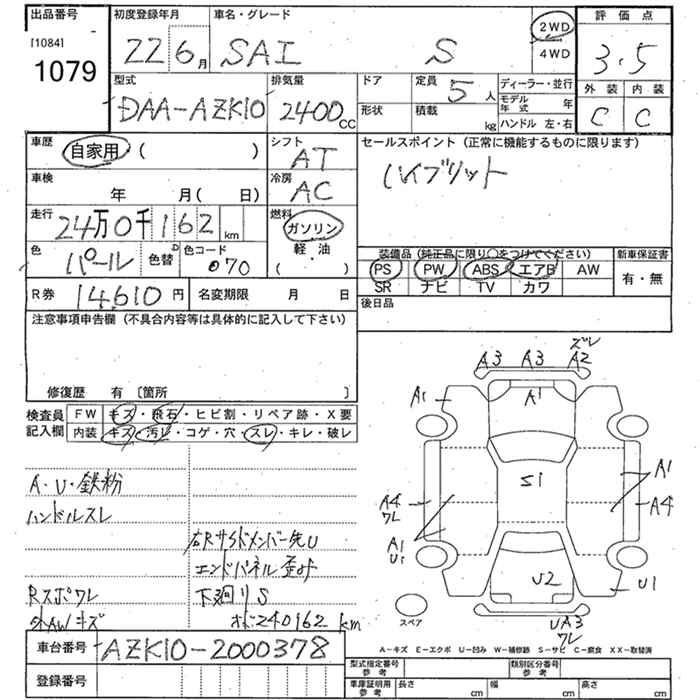 出品番号 初度登録年月 車名・グレード 2WD 評価点
[1084] 1079 22 6月 SAI S 4WD 3.5
型式 排気量 ドア 定員 5人 ディーラー・並行 外装 内装
DAA-AZK10 2400CC 形状 積載 kg モデル年式 年 C C
ハンドル 左・右
車歴 自家用 ( ) シフト AT セールスポイント (正常に機能するものに限ります)
車検 年 月 ( 日) 冷房 AC ハイブリット
走行 24万0千162km 燃料 ガソリン
軽・油
( )
色 パール 色替 色コード 070
装備品 (純正品に限り○をつけてください) 新車保証書
PS PW ABS エアB AW 有・無
SR ナビ TV カワ
R券 14610円 名変期限 月 日 後日品
注意事項申告欄 (不具合内容等は具体的に記入して下さい)
修復歴 有 [箇所 ]
検査員 FW キズ・飛石・ヒビ割・リペア跡・X要
記入欄 内装 キズ・汚レ・コゲ・穴・スレ・キレ・破レ
A・U・鉄粉
ハンドルスレ
右Rサイドメンバー先U
エンドパネル歪み
Rスポワレ 下廻りS
外AWキズ 240162km
ズレ
A3 A3 A2
A1 A1
S1 A1
A4 ワレ A4
A1
U1
U2 U1
スペア UA3
ワレ
A-キズ E-エクボ U-凹み W-補修跡 S-サビ C-腐食 XX-取替済
車台番号 AZK10-2000378
登録番号
型式指定番号 参考 類別区分番号 参考
車庫証明用 参考 長さ cm 幅 cm 高さ cm